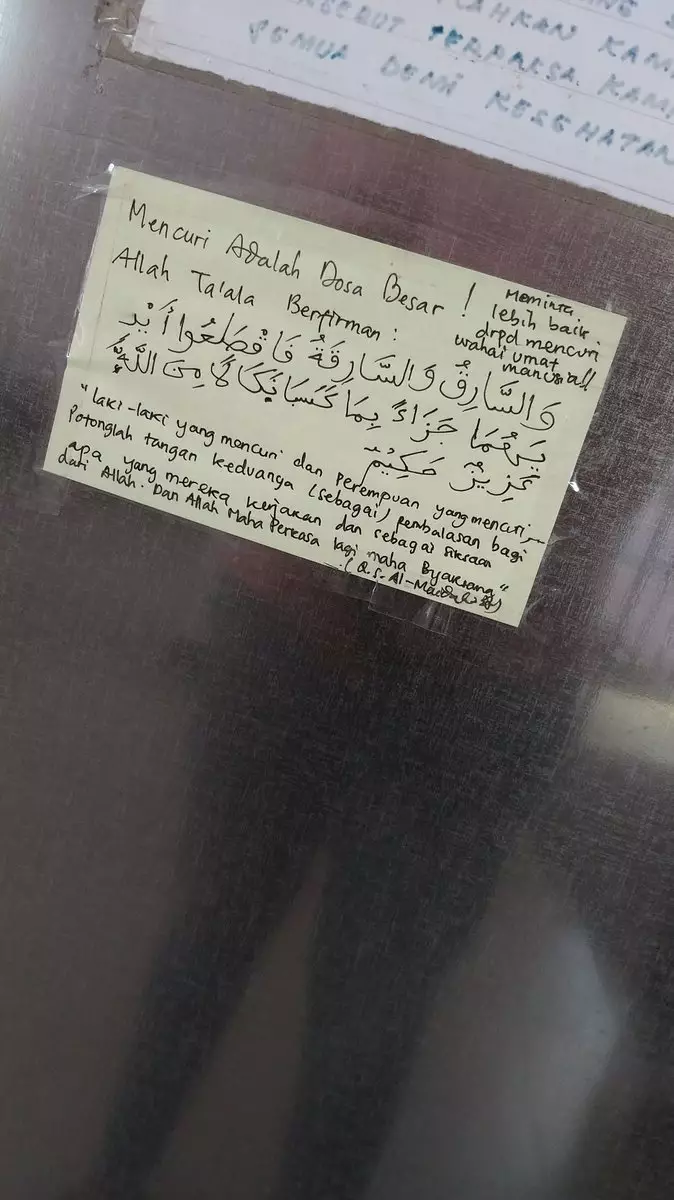 KAHKAN KAM
TERPAKSA KAM
SEMUA DEMI KESEHATAN
Mencuri Adalah Dosa Besar !
Allah Ta'ala Berfirman :
Meminta
lebih baik
drpd mencuri
wahai umat
manusia!!
وَالسَّارِقُ وَالسَّارِقَةُ فَاقْطَعُوا أَيْدِ
يَهُمَا جَزَاءً بِمَا كَسَبَا نَكَالًا مِنَ اللَّهِ
عَزِيزٌ حَكِيمٌ
"laki-laki yang mencuri dan perempuan yang mencuri,
Potonglah tangan keduanya (sebagai) pembalasan bagi
apa yang mereka kerjakan dan sebagai siksaan
dari Allah. Dan Allah Maha Perkasa lagi maha
(Q.S. Al-Maidah